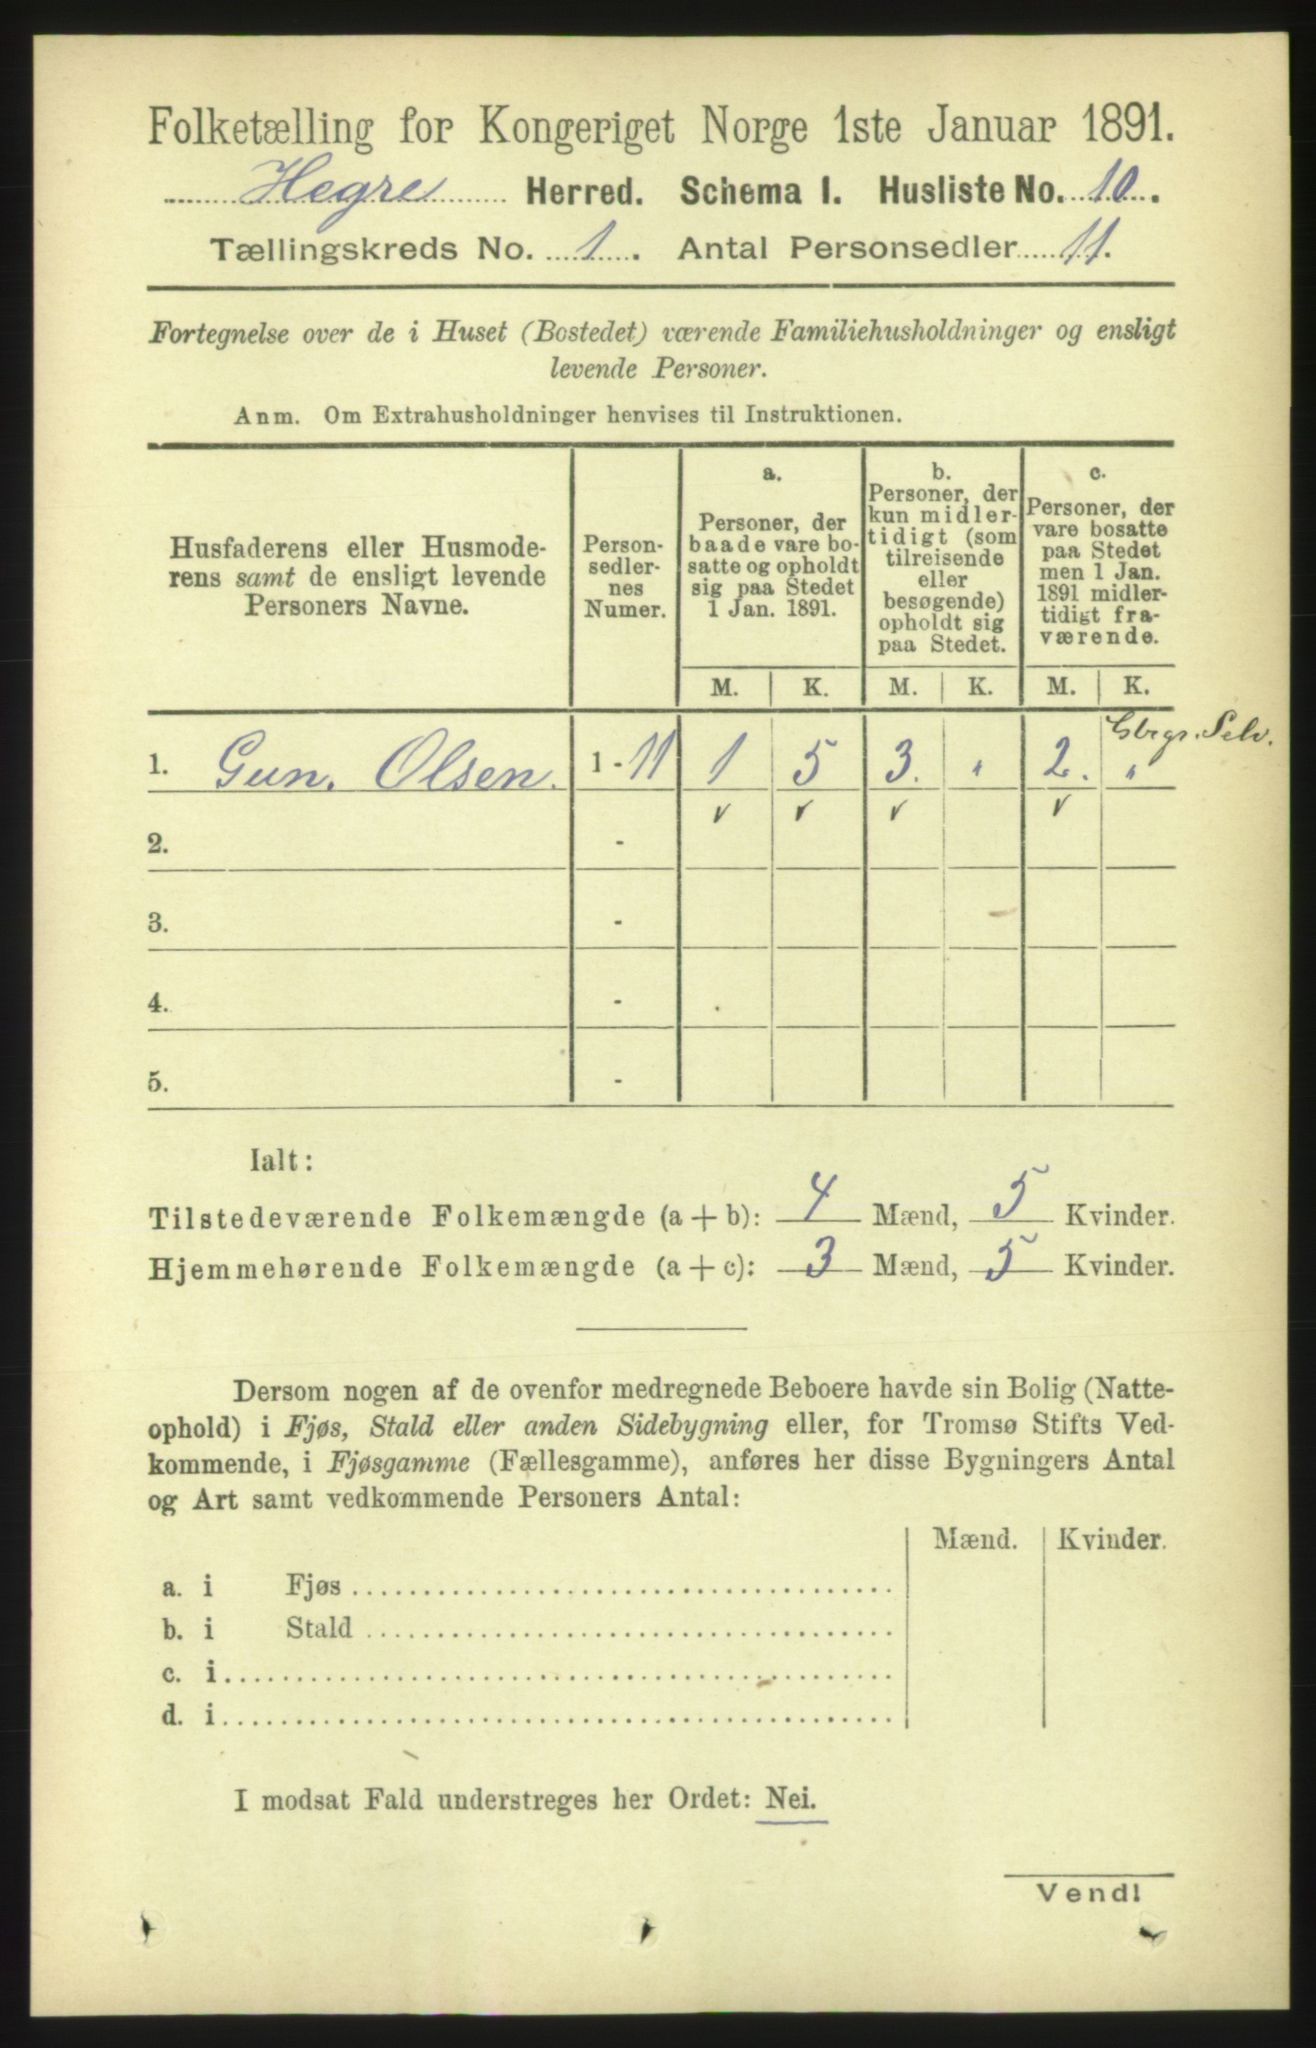 Folketælling for Kongeriget Norge 1ste Januar 1891.
Hegre Herred. Schema I. Husliste No. 10.
Tællingskreds No. 1. Antal Personsedler 11.
Fortegnelse over de i Huset (Bostedet) værende Familiehusholdninger og ensligt
levende Personer.
Anm. Om Extrahusholdninger henvises til Instruktionen.
Husfaderens eller Husmode-
rens samt de ensligt levende
Personers Navne.
Person-
sedler-
nes
Numer.
a.
Personer, der
baade vare bo-
satte og opholdt
sig paa Stedet
1 Jan. 1891.
b.
Personer, der
kun midler-
tidigt (som
tilreisende
eller
besøgende)
opholdt sig
paa Stedet.
c.
Personer, der
vare bosatte
paa Stedet
men 1 Jan.
1891 midler-
tidigt fra-
værende.
M. K. M. K. M. K.
Gbrgr. Selv.
1. Gun. Olsen. 1 - 11 1 5 3. " 2. "
2. -
3. -
4. -
5. -
Ialt:
Tilstedeværende Folkemængde (a + b): 4 Mænd, 5 Kvinder.
Hjemmehørende Folkemængde (a + c): 3 Mænd, 5 Kvinder.
Dersom nogen af de ovenfor medregnede Beboere havde sin Bolig (Natte-
ophold) i Fjøs, Stald eller anden Sidebygning eller, for Tromsø Stifts Ved-
kommende, i Fjøsgamme (Fællesgamme), anføres her disse Bygningers Antal
og Art samt vedkommende Personers Antal:
Mænd. Kvinder.
a. i Fjøs
b. i Stald
c. i
d. i
I modsat Fald understreges her Ordet: Nei.
Vend!